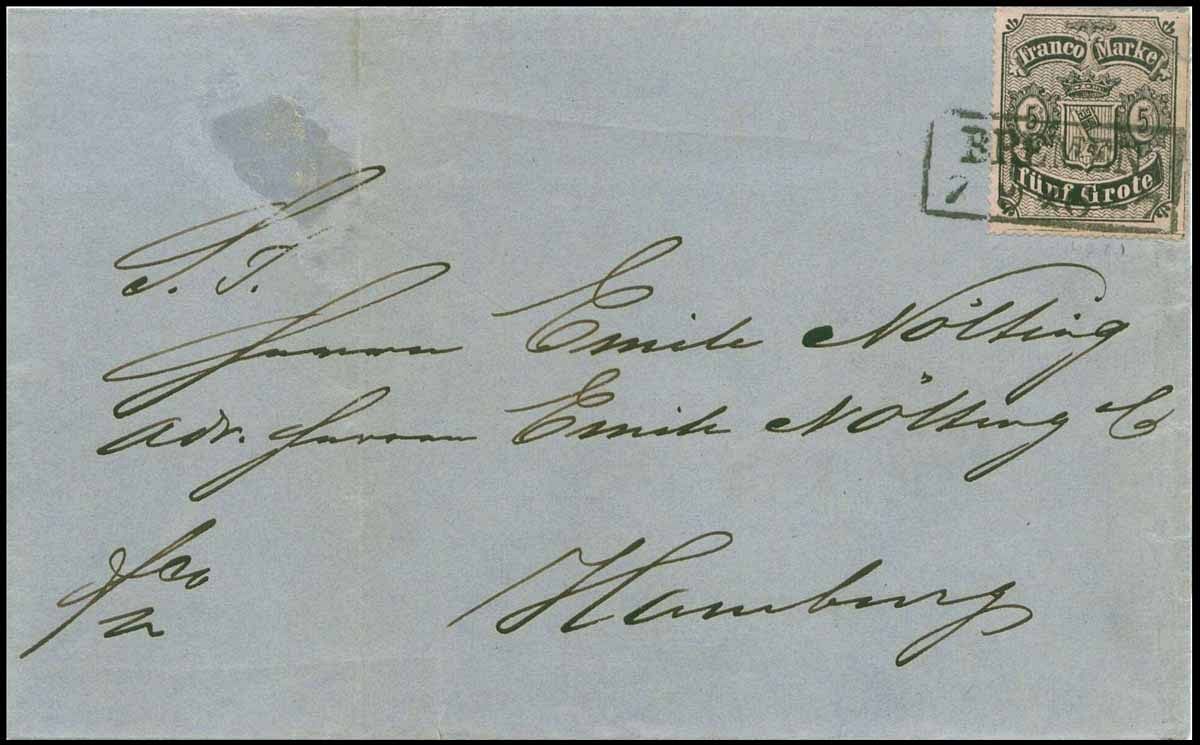 Franco Marke
5 5
fünf Grote
BR
7
S. T.
Herrn Emile Nölting
adr. Herren Emile Nölting Co
fco
Hamburg